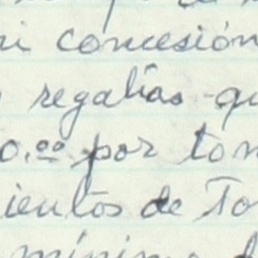 mi concesión
regalías qu
0.00 por ton
ientos de To
mínimo